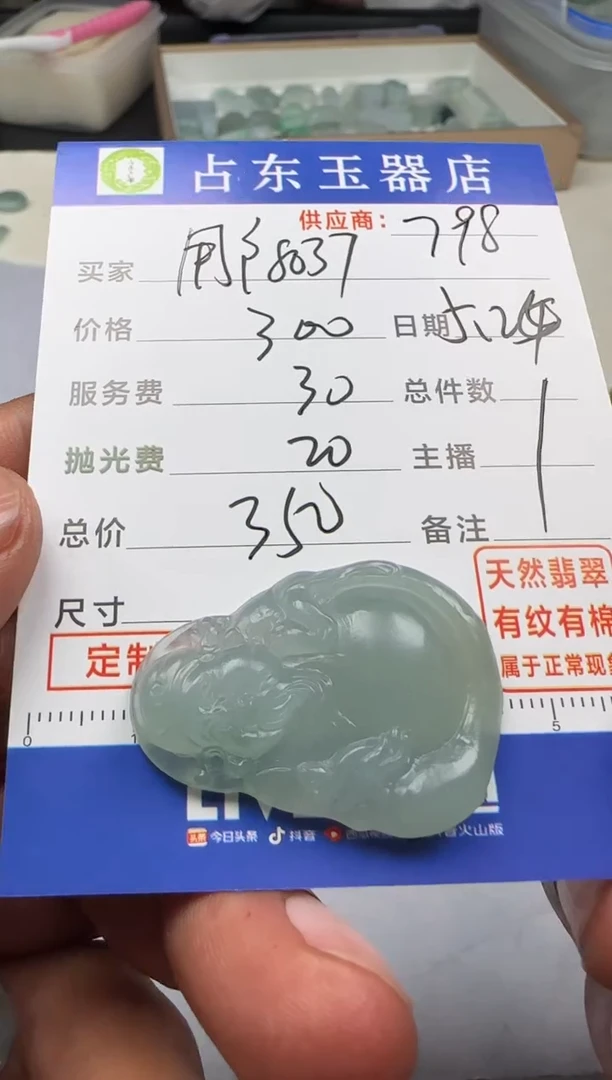 占东玉器店
供应商: 798
买家 用户8037
价格 300 日期 六.24
服务费 30 总件数 1
抛光费 20 主播
总价 350 备注
尺寸
天然翡翠
有纹有棉
属于正常现象
定制
0 1 5
今日头条 抖音 火山版